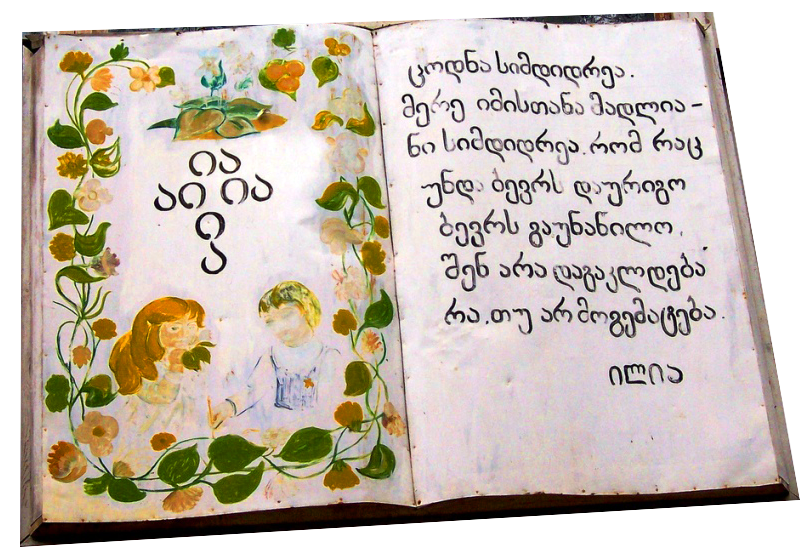 ია
აი ია
ი
ა
ცოდნა სიმდიდრეა.
მერე იმისთანა მადლია-
ნი სიმდიდრეა. რომ რაც
უნდა ბევრს დაურიგო
ბევრს გაუნაწილო,
შენ არა დაგაკლდება
რა, თუ არ მოგემატება.
ილია